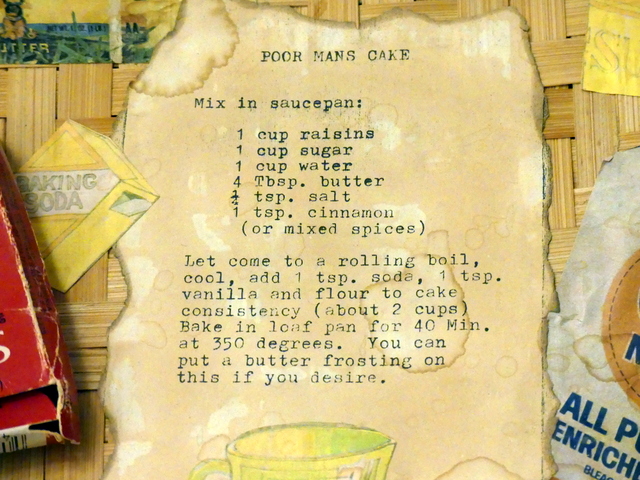 UTTER
POOR MANS CAKE
Mix in saucepan:
1 cup raisins
1 cup sugar
1 cup water
4 Tbsp. butter
tsp. salt
1 tsp. cinnamon
(or mixed spices)
Let come to a rolling boil,
cool, add 1 tsp. soda, 1 tsp.
vanilla and flour to cake
consistency (about 2 cups)
Bake in loaf pan for 40 Min.
at 350 degrees. You can
put a butter frosting on
this if you desire.
BAKING
SODA
S
ALL PU
ENRICHE
BLEAC